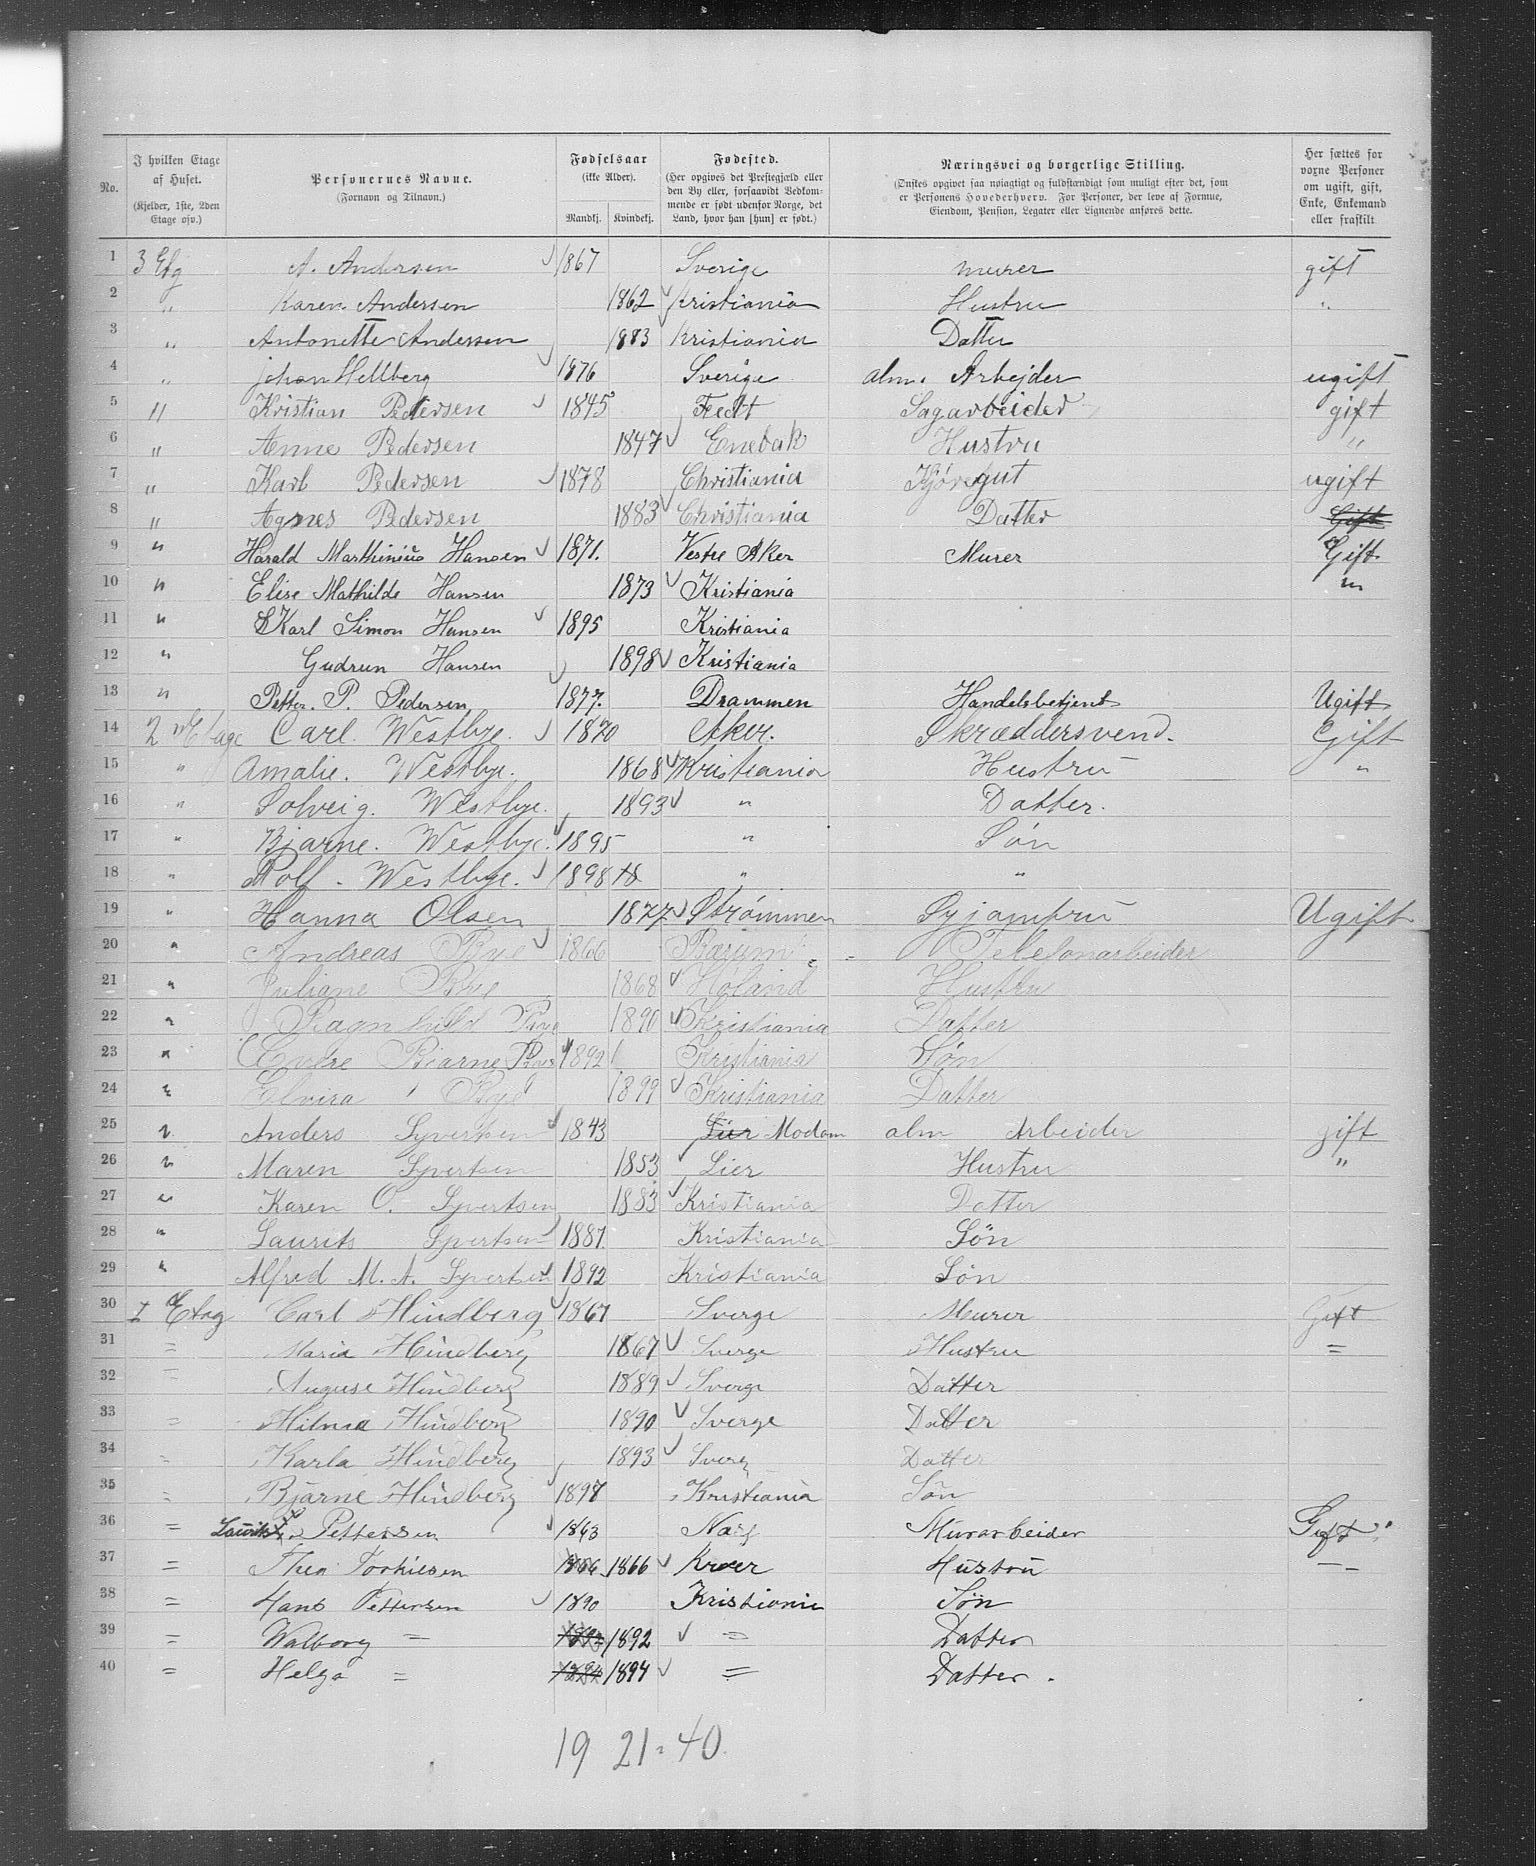 No. | I hvilken Etage af Huset. (Kjelder, 1ste, 2den Etage osv.) | Personernes Navne. (Fornavn og Tilnavn.) | Fødselsaar (ikke Alder). Mandkj. | Kvindekj. | Fødested. (Her opgives det Prestegjæld eller den By eller, forsaavidt Vedkommende er født udenfor Norge, det Land, hvor han [hun] er født.) | Næringsvei og borgerlige Stilling. (Ønskes opgivet saa nøiagtigt og fuldstændigt som muligt efter det, som er Personens Hovederhverv. For Personer, der leve af Formue, Eiendom, Pension, Legater eller Lignende anføres dette.) | Her sættes for voxne Personer om ugift, gift, Enke, Enkemand eller fraskilt
1 3 Etg A. Andersen 1867 Sverige murer gift
2 " Karen Andersen 1862 Kristiania Hustru "
3 " Antonette Andersen 1883 Kristiania Datter
4 " Johan Hellberg 1876 Sverige alm. Arbejder ugift
5 " Kristian Pedersen 1845 Fedt Sagarbeider gift
6 " Anne Pedersen 1847 Enebak Hustru "
7 " Karl Pedersen 1878 Christiania Kjøregut ugift
8 " Agnes Pedersen 1883 Christiania Datter Gift
9 " Harald Marthinius Hansen 1871. Vestre Aker Murer Gift
10 " Elise Mathilde Hansen 1873 Kristiania "
11 " Karl Simon Hansen 1895 Kristiania
12 " Gudrun Hansen 1898 Kristiania
13 " Petter. P. Pedersen 1877. Drammen Handelsbetjent Ugift
14 2 Etage Carl. Westbye. 1870 Aker. Skræddersvend. Gift
15 " Amalie. Westbye. 1868 Kristiania Hustru "
16 " Solveig. Westbye. 1893 " Datter.
17 " Bjarne. Westbye. 1895 " Søn
18 " Rolf. Westbye. 1898 18 " "
19 " Hanna Olsen 1877 Strømmen Syjomfru Ugift
20 " Andreas Rye 1866 Bærum Telefonarbeider
21 " Juliane Rye 1868 Høland Hustru
22 " Ragnhild Rye 1890 Kristiania Datter
23 " Bjarne Rye 1892 Kristiania Søn
24 " Elvira Rye 1899 Kristiania Datter
25 " Anders Syvertsen 1843 Lier Modom alm Arbeider gift
26 " Maren Syvertsen 1853 Lier Hustru "
27 " Karen O. Syvertsen 1883 Kristiania Datter
28 " Laurits Syvertsen 1887. Kristiania Søn
29 " Alfred M. A. Syvertsen 1892 Kristiania Søn
30 I Etag Carl Hindberg 1867 Sverge Murer Gift
31 = Maria Hindberg 1867 Sverge Hustru =
32 = Auguse Hindberg 1889 Sverge Datter
33 = Hilma Hindberg 1890 Sverge Datter
34 = Karla Hindberg 1893 Sverg Datter
35 = Bjarne Hindberg 1897 Kristiania Søn
36 = Laurits Pettersen 1863 Murarbeider Gift
37 = Thea Torkilsen 1866 1866 Kroer Hustru —
38 = Hans Pettersen 1890 Kristiania Søn
39 = Walborg = 1892 1892 = Datter
40 = Helga = 1894 1894 = Datter.
19 21 = 40.